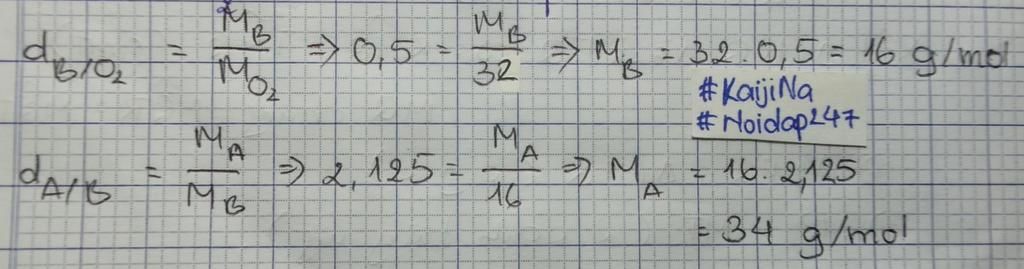 d_B/O₂ = M_B / M_O₂ => 0,5 = M_B / 32 => M_B = 32 . 0,5 = 16 g/mol
#KaijiNa
#Noidap247
d_A/B = M_A / M_B => 2,125 = M_A / 16 => M_A = 16 . 2,125
= 34 g/mol